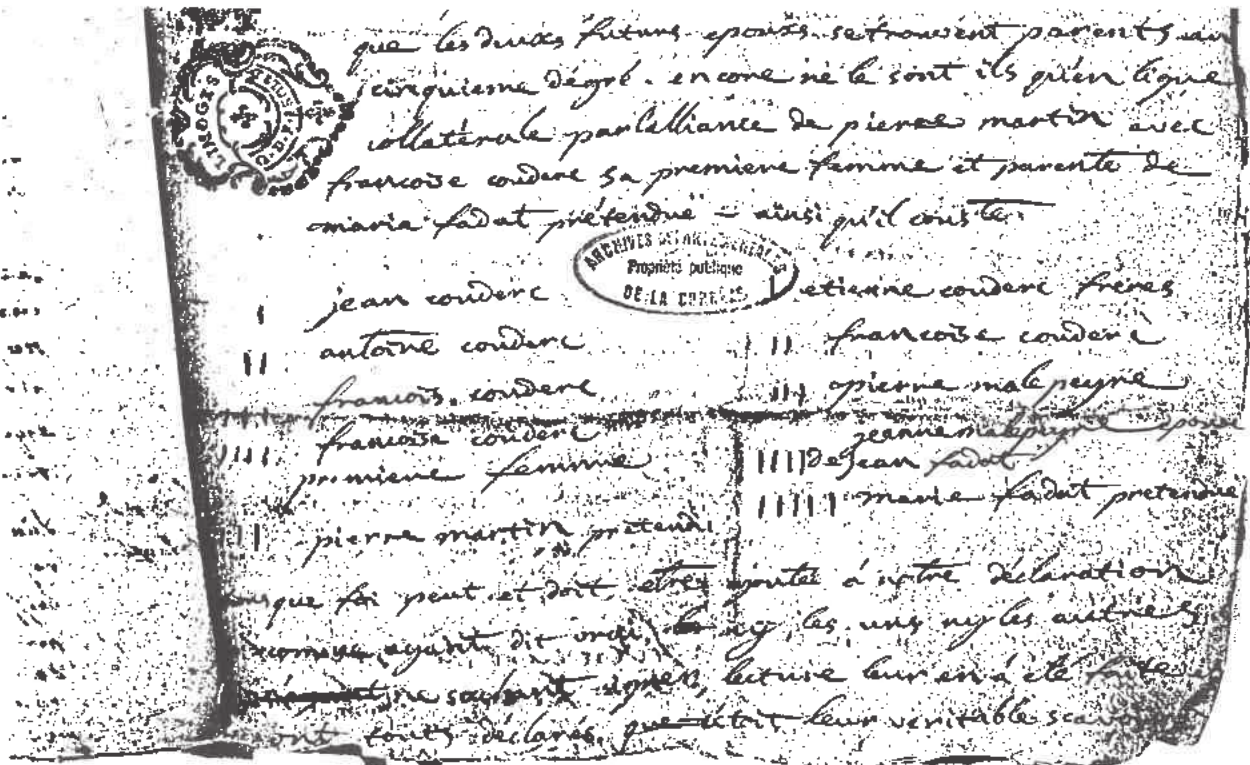 que les deux futurs epoux se trouvent parents au
cinquieme dégré. encore ne le sont ils qu'en ligne
collatérale par l'alliance de pierre martin avec
francoise couderc sa premiere femme et parente de
maria fadat prétendue = ainsi qu'il conste.
LIMOGES
ARCHIVES DÉPARTEMENTALES
Propriété publique
DE LA CORRÈZE
I jean couderc I etienne couderc frères
II antoine couderc II francoise couderc
francois couderc III pierre malepeyre
IIII francoise couderc premiere femme
jeanne malepeyre epouse
IIII de jean fadat
pierre martin prétendu
IIIII marie fadat pretendue
que foi peut et doit etre ajoutée à notre déclaration
comme ayant dit vrai, ny les uns ny les autres
ne sachant signer, lecture leur en a été faite
ont touts déclarés que c'étoit leur veritable